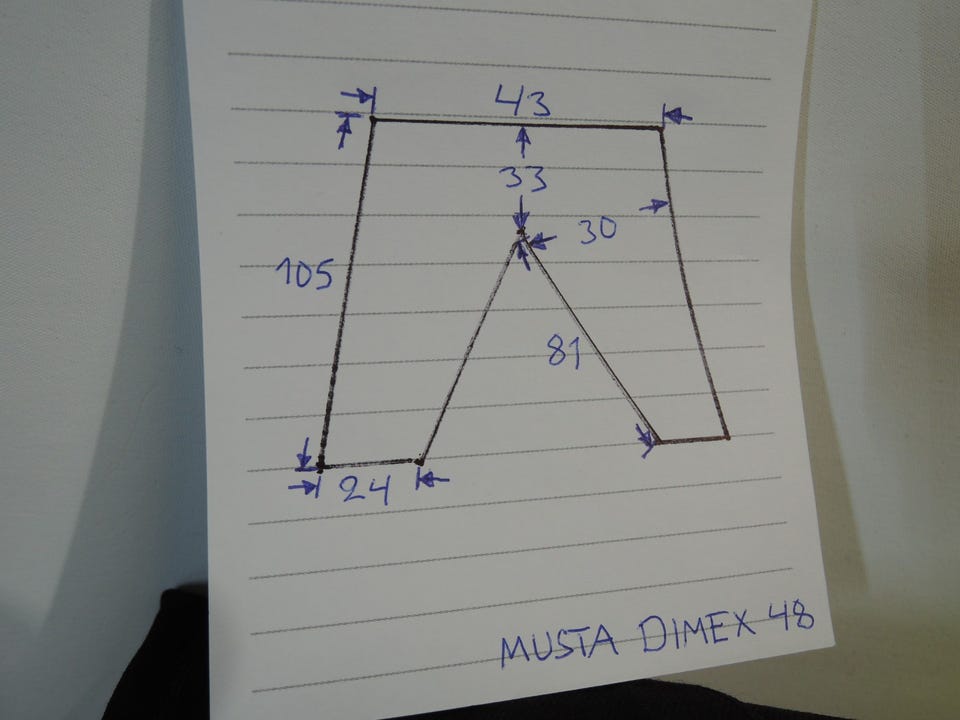 43
33
30
105
81
24
MUSTA DIMEX 48